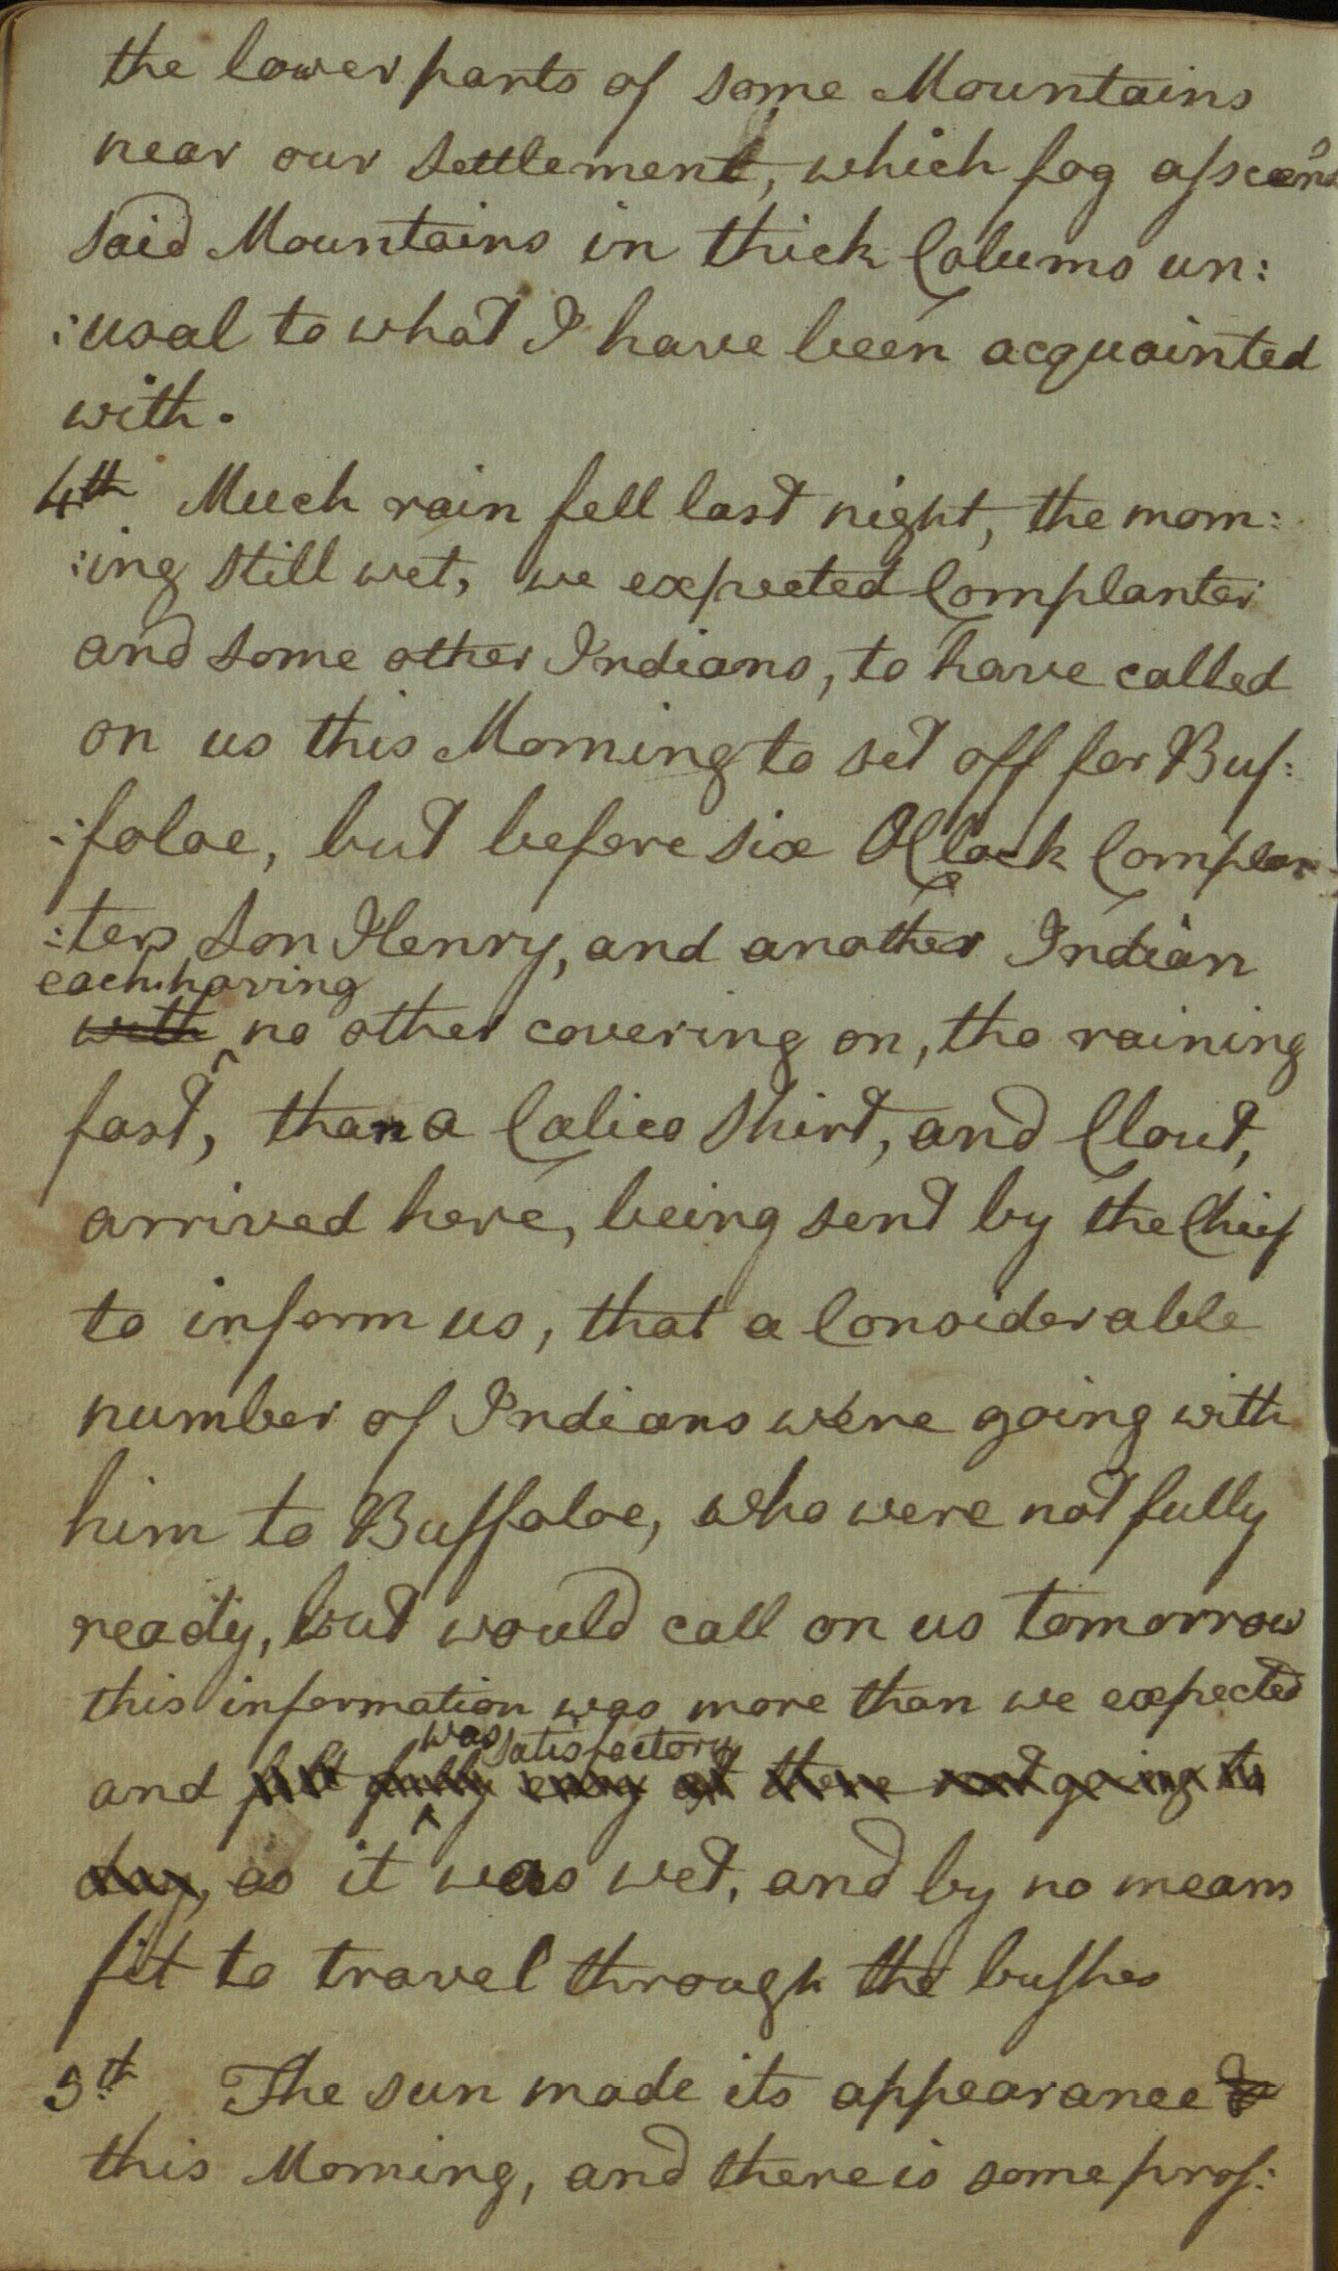 the lower parts of some Mountains
near our settlement, which fog asscends
said Mountains in thick Colums un:
:usal to what I have been acquainted
with.
4th Much rain fell last night, the morn:
:ing still wet, we expected Cornplanter
and some other Indians, to have called
on us this Morning to set off for Buf:
:faloe, but before six OClock Cornplan:
:ters son Henry, and another Indian
each having
with no other covering on, tho raining
fast, than a Calico Shirt, and Clout,
arrived here, being sent by the Chief
to inform us, that a Considerable
number of Indians were going with
him to Buffaloe, who were not fully
ready, but would call on us tomorrow
this information was more than we expected
was satisfactory
and felt fully easy at there not going to
day, as it was wet, and by no means
fit to travel through the bushes
5th The sun made its appearance &
this Morning, and there is some pros: